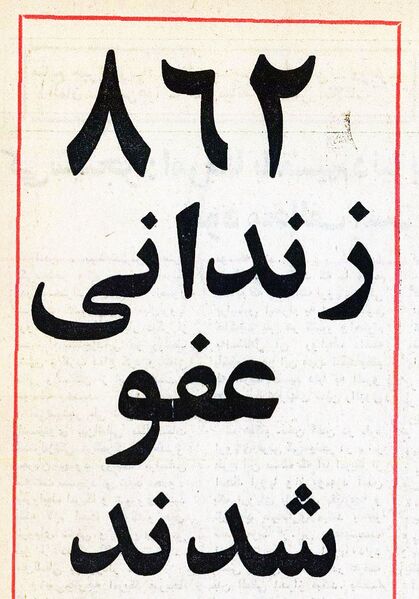 ۸۶۲
زندانی
عفو
شدند